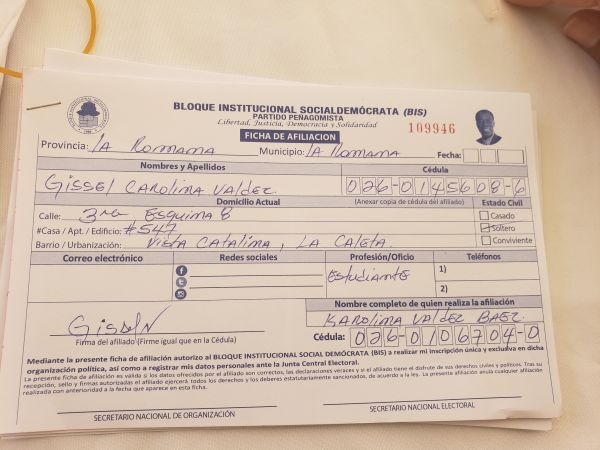 BLOQUE INSTITUCIONAL SOCIALDEMÓCRATA (BIS)
PARTIDO PEÑAGOMISTA
Libertad, Justicia, Democracia y Solidaridad
FICHA DE AFILIACION
109946
Provincia: LA ROMANA Municipio: LA ROMANA Fecha:
Nombres y Apellidos Cédula
GISSEL CAROLINA VALDEZ 026-0145608-6
Domicilio Actual (Anexar copia de cédula del afiliado) Estado Civil
Calle: 3ra ESQUINA 8
Casado
#Casa / Apt. / Edificio: #547
Soltero
Barrio / Urbanización: VISTA CATALINA, LA CALETA.
Conviviente
Correo electrónico Redes sociales Profesión/Oficio Teléfonos
Estudiante
1)
2)
Nombre completo de quien realiza la afiliación
KAROLINA VALDEZ BAEZ
Firma del afiliado (Firme igual que en la Cédula)
Cédula: 026-0106704-0
Mediante la presente ficha de afiliación autorizo al BLOQUE INSTITUCIONAL SOCIAL DEMÓCRATA (BIS) a realizar mi inscripción única y exclusiva en dicha
organización política, así como a registrar mis datos personales ante la Junta Central Electoral.
La presente ficha de afiliación es válida si los datos ofrecidos por el afiliado son correctos, las declaraciones veraces y si el afiliado tiene el disfrute de sus derechos civiles y políticos. Tras su
recepción, sello y firmas autorizadas el afiliado ejercerá todos los derechos y los deberes estatutariamente sancionados, de acuerdo a la ley. La presente afiliación anula cualquier afiliación
realizada con anterioridad a la fecha que aparece en esta ficha.
SECRETARIO NACIONAL DE ORGANIZACIÓN
SECRETARIO NACIONAL ELECTORAL